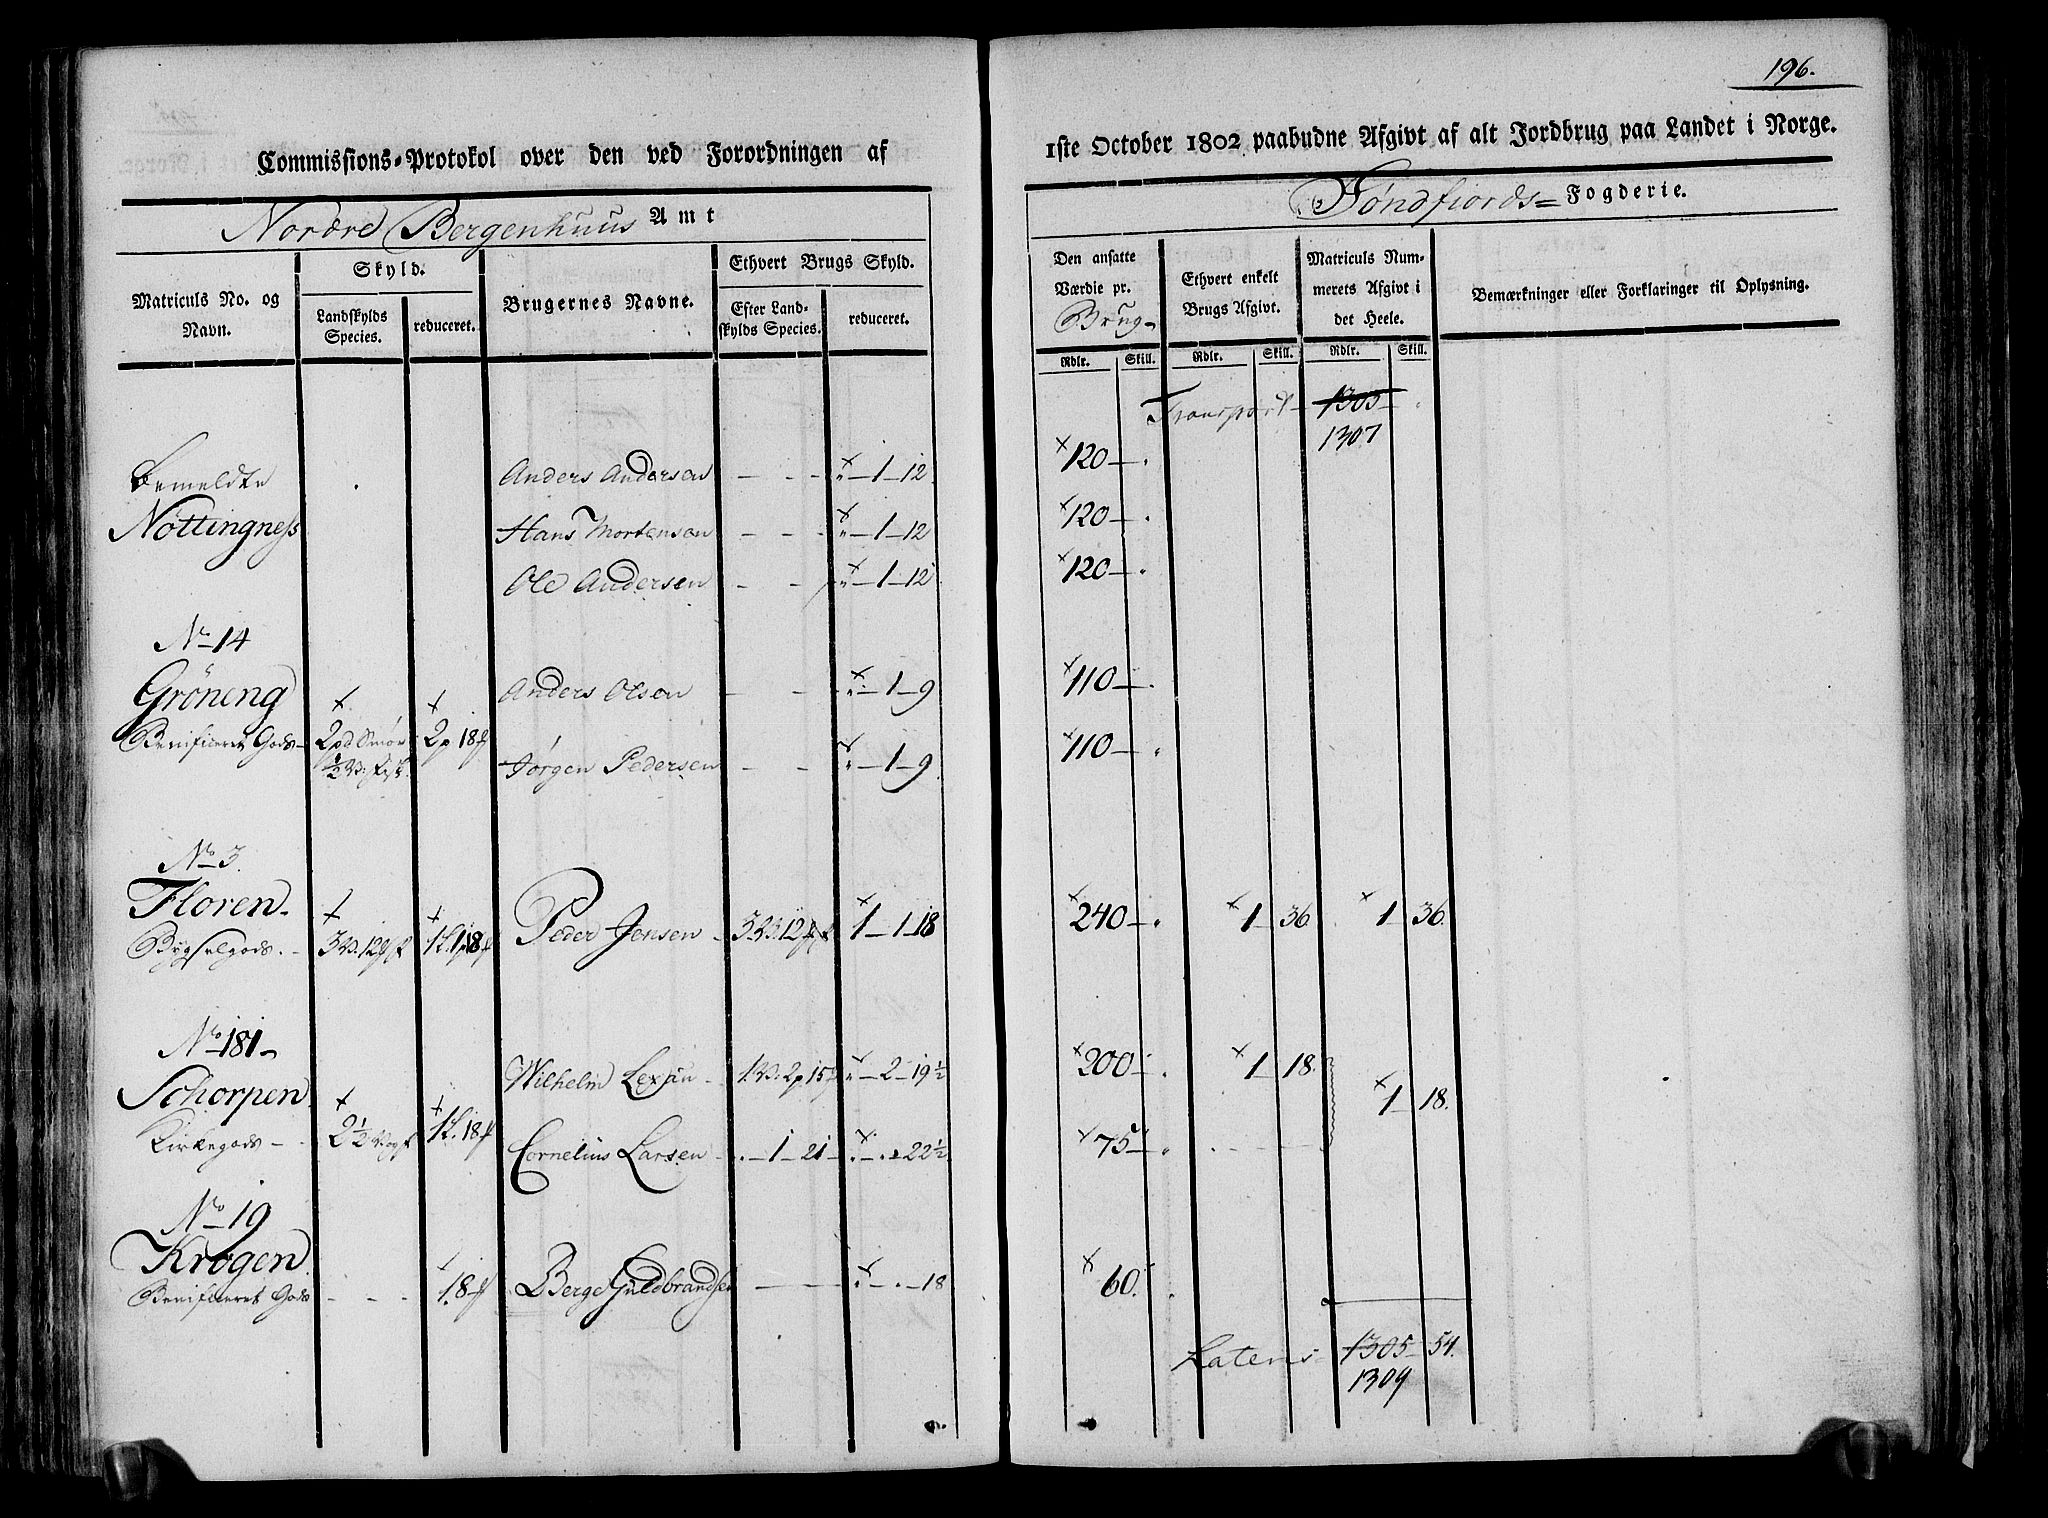 196.
Commissions-Protokol over den ved Forordningen af
1ste October 1802 paabudne Afgivt af alt Jordbrug paa Landet i Norge.
Nordre Bergenhuus Amt
Søndfiords= Fogderie.
Matriculs No. og Navn.
Skyld.
Landskylds Species.
reduceret.
Brugernes Navne.
Ethvert Brugs Skyld.
Efter Landskylds Species.
reduceret.
Den ansatte Værdie pr. Brug
Ethvert enkelt Brugs Afgivt.
Matriculs Nummerets Afgivt i det Heele.
Bemærkninger eller Forklaringer til Oplysning.
Rdlr. Skill. Rdlr. Skill. Rdlr. Skill.
Transport 1305
1307
Bemeldte Anders Andersen - - " - 1 - 12 120 -
Nöttingness Hans Mortensen - - " - 1 - 12 120 -
Ole Andersen - - " - 1 - 12 120 -
No 14
Gröneng Anders Olsen - - " - 1 - 9 110 -
Benificeret Gods - 2 pd Smör 2 p 18
½ V: fisk Jörgen Pedersen - - " - 1 - 9 110 -
No 3.
Floren
Bygselgods. - 3 V. 12 1 L. 1 p 18 Peder Jensen - 3 V. 12 1 - 1 - 18 240 - 1 36 1 36.
No 181
Schorpen Wilhelm - 1. V: 2 p 15 " - 2 - 19½ 200 - 1 18. 1 18.
Kirkegods - 2½ V: 1 L. 18 Cornelius Larsen - 1 - 21 - 22½ 75 -
No 19
Krogen
Benificeret Gods - - - 18 Berge Guldbrandsen - - - 18 60.
Latens 1305 54.
1309